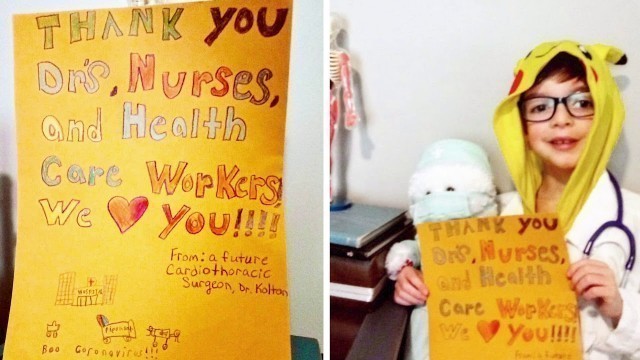 THANK YOU
Dr's, Nurses,
and Health
Care Workers!
We YOU!!!!
From: a future
Cardiothoracic
Surgeon, Dr. Kolton
Hospital
Boo Coronavirus!!!
THANK YOU
Dr's, Nurses,
and Health
Care Workers
We YOU!!!!
From: a future